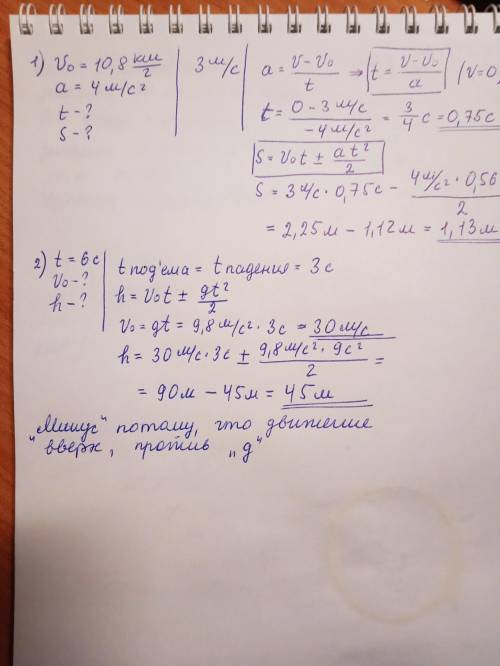 1) V₀ = 10,8 км/г | 3 м/с | a = (V - V₀)/t ⇒ t = (V - V₀)/a (V=0
a = 4 м/с²
t - ?
S - ?
t = (0 - 3 м/с)/(-4 м/с²) = 3/4 с = 0,75 с
S = V₀t ± at²/2
S = 3 м/с · 0,75с - (4 м/с² · 0,56)/2
= 2,25м - 1,12м = 1,13м
2) t = 6с
V₀ - ?
h - ?
t под'ема = t падения = 3с
h = V₀t ± gt²/2
V₀ = gt = 9,8 м/с² · 3с = 30 м/с
h = 30 м/с · 3с ± (9,8 м/с² · 9с²)/2 =
= 90м - 45м = 45м
"Минус" потому, что движение
вверх, против „g"